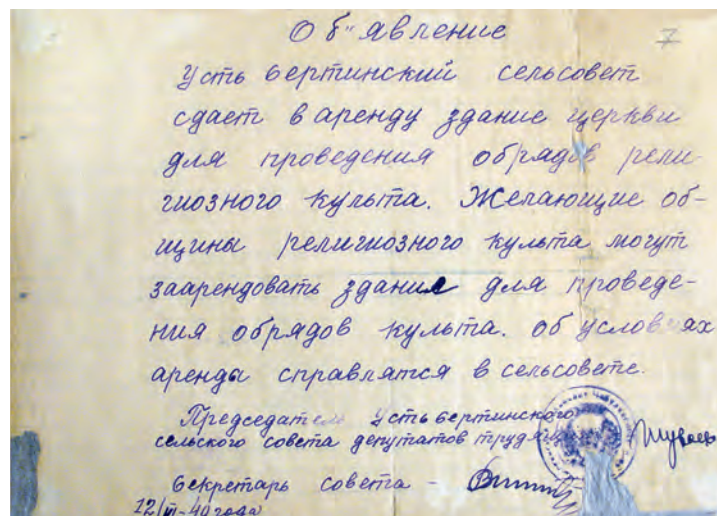 Об"явление
7
Усть бертинский сельсовет
сдает в аренду здание церкви
для проведения обрядов рели-
гиозного культа. Желающие об-
щины религиозного культа могут
заарендовать здание для проведе-
ния обрядов культа. об условиях
аренды справлятся в сельсовете.
Председатель Усть бертинского
сельского совета депутатов трудящ.
Шуваев
Секретарь совета -
12/III-40 года